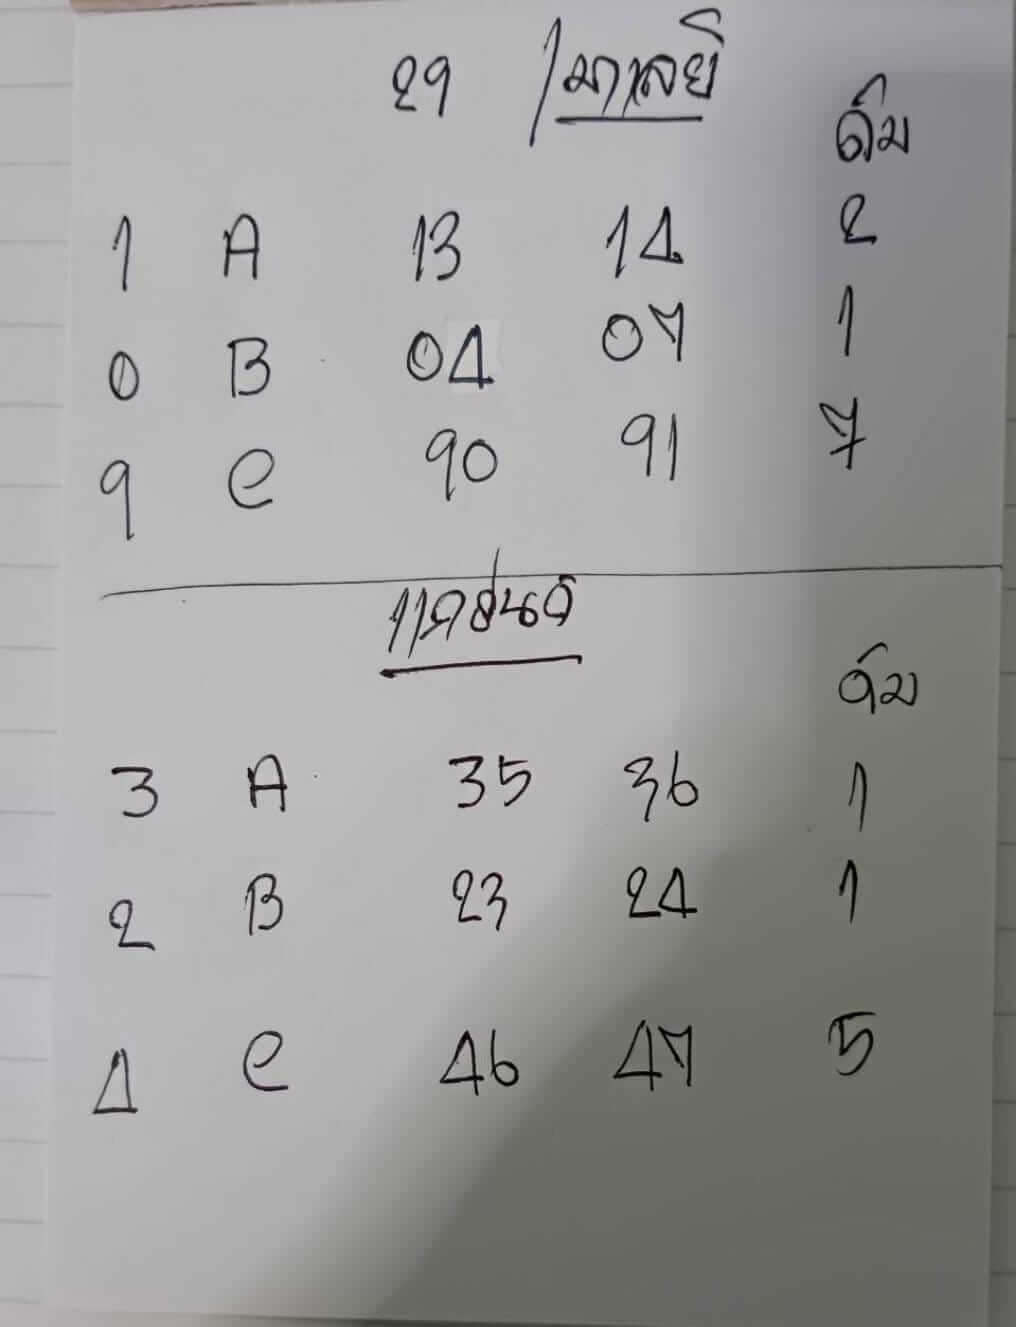 29 / มาเลย์
ดิ่ม
1 A 13 14 2
0 B 04 07 1
9 C 90 91 7
ดิ่ม
3 A 35 36 1
2 B 23 24 1
4 C 46 47 5